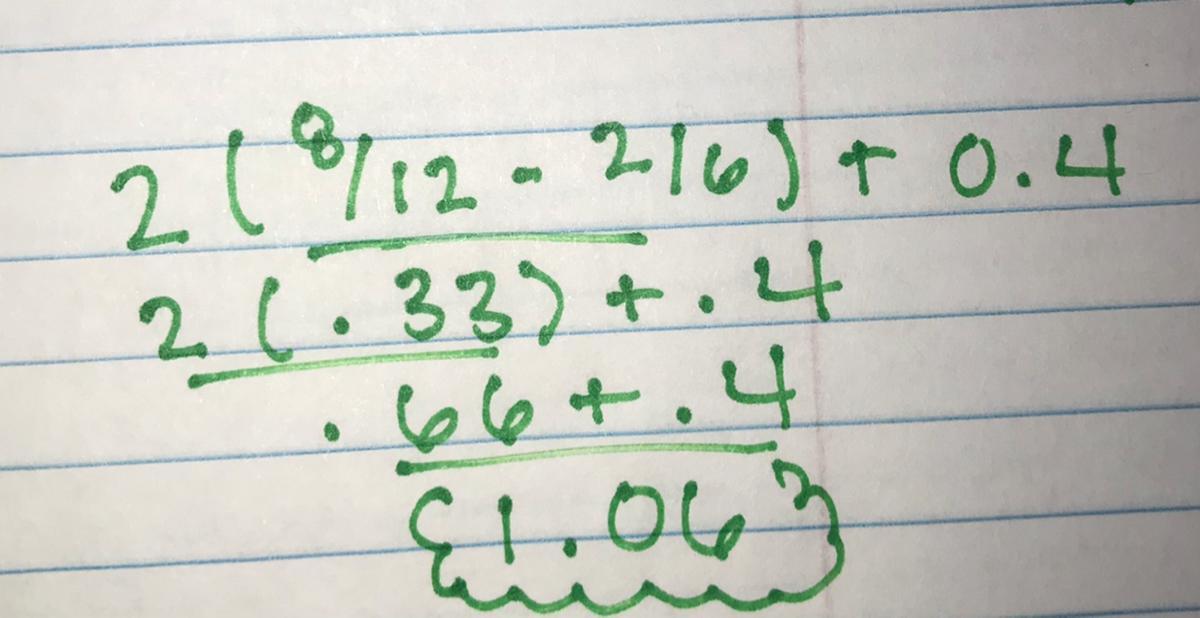 2 (8/12 - 2/6) + 0.4
2 (.33) + .4
.66 + .4
1.06